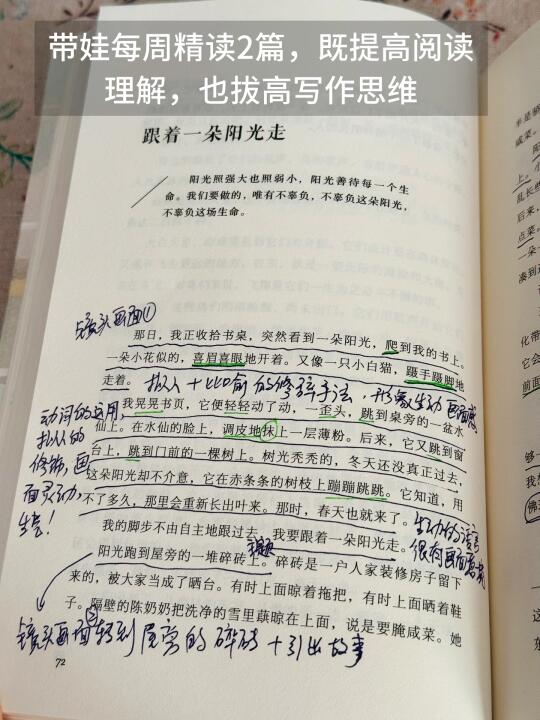 带娃每周精读2篇，既提高阅读
理解，也拔高写作思维
跟着一朵阳光走
阳光照强大也照弱小，阳光善待每一个生
命。我们要做的，唯有不辜负，不辜负这朵阳光，
不辜负这场生命。
镜头画面①
那日，我正收拾书桌，突然看到一朵阳光，爬到我的书上。
一朵小花似的，喜眉喜眼地开着。又像一只小白猫，蹑手蹑脚地
走着。
拟人+比喻的修辞手法，形象生动
我晃晃书页，它便轻轻动了动，一歪头，跳到桌旁的一盆水
仙上。在水仙的脸上，调皮地抹上一层薄粉。后来，它又跳到窗
台上，跳到门前的一棵树上。树光秃秃的，冬天还没真正过去，
这朵阳光却不介意，它在赤条条的树枝上蹦蹦跳跳。它知道，用
不了多久，那里会重新长出叶来。那时，春天也就来了。
动词的运用，
拟人的
修辞，画
面灵动，
生动的语言
很有画面
我的脚步不由自主地跟过去，我要跟着一朵阳光走。
阳光跑到屋旁的一堆碎砖上。碎砖是一户人家装修房子留下
来的，被大家当成了晒台。有时上面晾着拖把，有时上面晒着鞋
子。隔壁的陈奶奶把洗净的雪里蕻晾在上面，说是要腌咸菜。她
镜头画面②转到屋旁的碎砖+引出故事
72
半是骄
咸菜。
上。
乱长些
后来，
点菜。
凑到
化带
它会
前面
够一
我